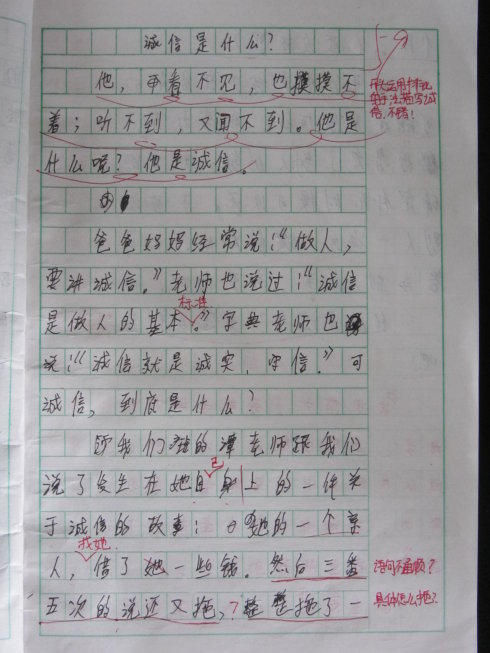 诚信是什么?
他,看不见,也摸摸不
着;听不到,又闻不到。他是
什么呢?他是诚信。
爸爸妈妈经常说:“做人,
要讲诚信。”老师也说过:“诚信
标准
是做人的基本。”字典老师也
说:“诚信就是诚实,守信。”可
诚信,到底是什么?
我们班的谭老师跟我们
说了发生在她自身上的一件关
己
于诚信的故事:她的一个亲
找她
人,借了她一些钱。然后三番
语句不通顺?
五次的说还又拖,整整拖了一
具体怎么拖?